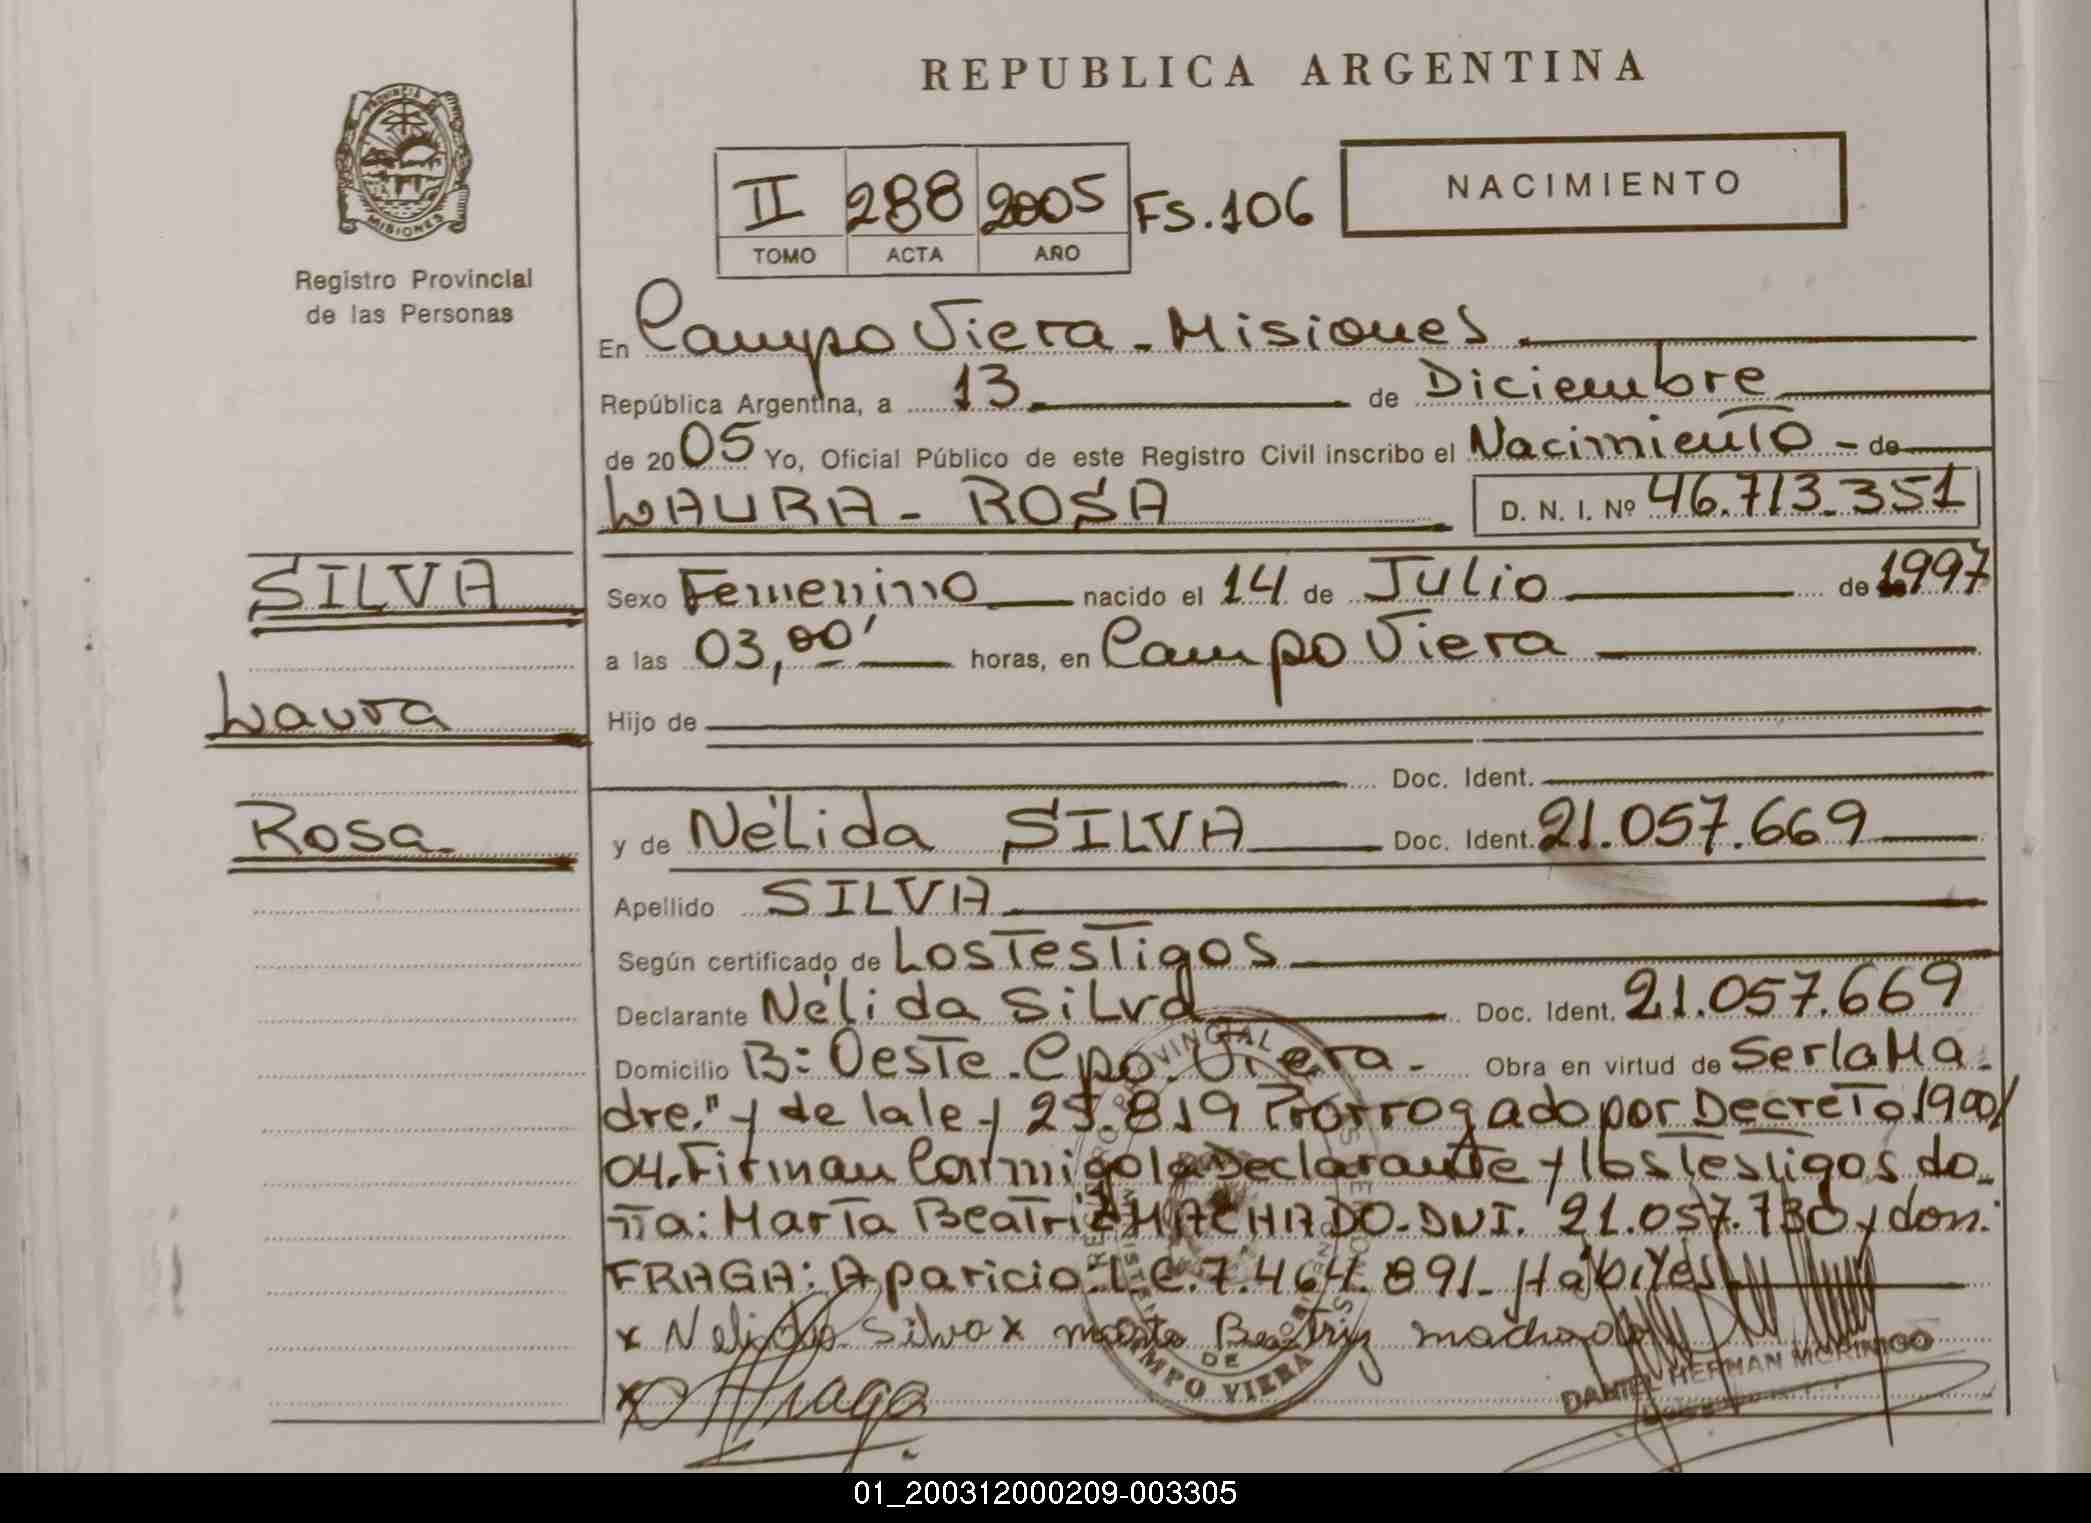 REPUBLICA ARGENTINA
PROVINCIA DE
MISIONES
Registro Provincial
de las Personas
II 288 2005 FS.106
TOMO ACTA AÑO
NACIMIENTO
En Campo Viera - Misiones
República Argentina, a 13 de Diciembre
de 2005 Yo, Oficial Público de este Registro Civil inscribo el Nacimiento - de
LAURA - ROSA D. N. I. Nº 46.713.351
SILVA
Laura
Rosa
Sexo Femenino nacido el 14 de Julio de 1997
a las 03,00' horas, en Campo Viera
Hijo de
Doc. Ident.
y de Nélida SILVA Doc. Ident. 21.057.669
Apellido SILVA
Según certificado de Los Testigos
Declarante Nélida Silva Doc. Ident. 21.057.669
Domicilio B: Oeste - Cpo. Viera - Obra en virtud de Ser la Ma-
dre." y de la ley 25.819 Prorrogado por Decreto 1900/
04. Firman Conmigo la Declarante y los Testigos do-
ña: Marta Beatriz MACHADO - DNI. 21.057.730 y don:
FRAGA: Aparicio L.E. 7.464.891 - Hábiles
x Nelida Silva x marta Beatriz machado
x Fraga
CAMPO VIERA
DANIEL HERMAN MORINIGO
01_200312000209-003305